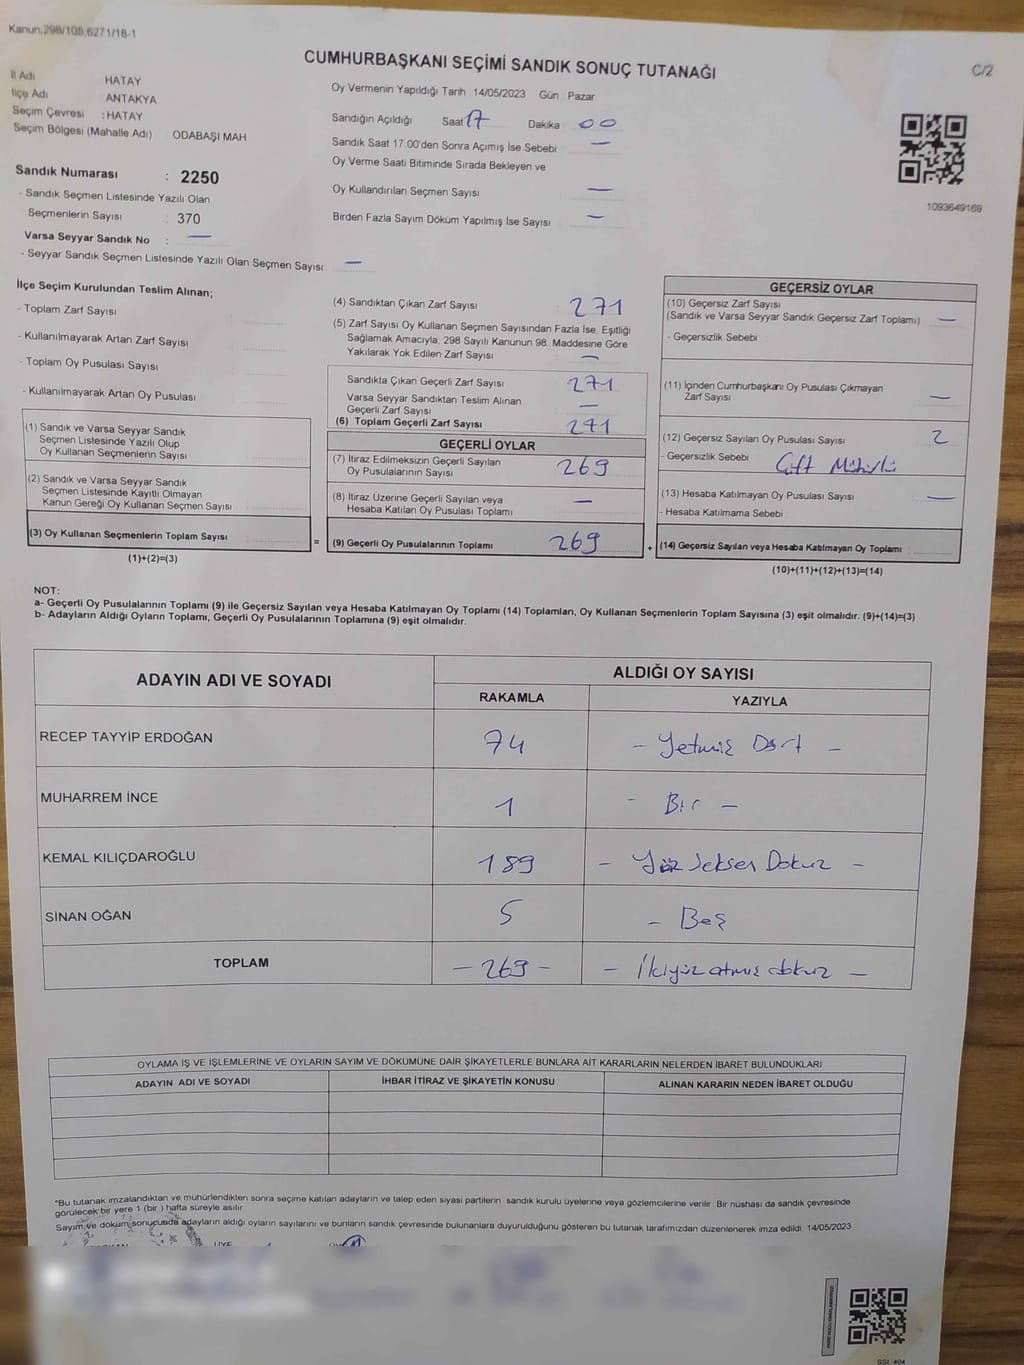 Kanun;298/108,6271/18-1
CUMHURBAŞKANI SEÇİMİ SANDIK SONUÇ TUTANAĞI
C/2
İl Adı HATAY
İlçe Adı ANTAKYA
Seçim Çevresi : HATAY
Seçim Bölgesi (Mahalle Adı) ODABAŞI MAH
Oy Vermenin Yapıldığı Tarih 14/05/2023 Gün Pazar
Sandığın Açıldığı Saat 17 Dakika 00
Sandık Saat 17.00'den Sonra Açımış İse Sebebi —
Oy Verme Saati Bitiminde Sırada Bekleyen ve
Oy Kullandırılan Seçmen Sayısı —
Birden Fazla Sayım Döküm Yapılmış İse Sayısı —
1093649169
Sandık Numarası : 2250
- Sandık Seçmen Listesinde Yazılı Olan
Seçmenlerin Sayısı : 370
Varsa Seyyar Sandık No : —
- Seyyar Sandık Seçmen Listesinde Yazılı Olan Seçmen Sayısı: —
İlçe Seçim Kurulundan Teslim Alınan;
- Toplam Zarf Sayısı
- Kullanılmayarak Artan Zarf Sayısı
- Toplam Oy Pusulası Sayısı
- Kullanılmayarak Artan Oy Pusulası
(1) Sandık ve Varsa Seyyar Sandık
Seçmen Listesinde Yazılı Olup
Oy Kullanan Seçmenlerin Sayısı
(2) Sandık ve Varsa Seyyar Sandık
Seçmen Listesinde Kayıtlı Olmayan
Kanun Gereği Oy Kullanan Seçmen Sayısı
(3) Oy Kullanan Seçmenlerin Toplam Sayısı
=
(1)+(2)=(3)
(4) Sandıktan Çıkan Zarf Sayısı 271
(5) Zarf Sayısı Oy Kullanan Seçmen Sayısından Fazla İse, Eşitliği
Sağlamak Amacıyla, 298 Sayılı Kanunun 98. Maddesine Göre
Yakılarak Yok Edilen Zarf Sayısı —
Sandıkta Çıkan Geçerli Zarf Sayısı 271
Varsa Seyyar Sandıktan Teslim Alınan
Geçerli Zarf Sayısı —
(6) Toplam Geçerli Zarf Sayısı 271
GEÇERLİ OYLAR
(7) İtiraz Edilmeksizin Geçerli Sayılan
Oy Pusulalarının Sayısı 269
(8) İtiraz Üzerine Geçerli Sayılan veya
Hesaba Katılan Oy Pusulaları Toplamı —
(9) Geçerli Oy Pusulalarının Toplamı 269
+
GEÇERSİZ OYLAR
(10) Geçersiz Zarf Sayısı
(Sandık ve Varsa Seyyar Sandık Geçersiz Zarf Toplamı) —
- Geçersizlik Sebebi
(11) İçinden Cumhurbaşkanı Oy Pusulası Çıkmayan
Zarf Sayısı —
(12) Geçersiz Sayılan Oy Pusulası Sayısı 2
- Geçersizlik Sebebi Çift Mühürlü
(13) Hesaba Katılmayan Oy Pusulası Sayısı —
- Hesaba Katılmama Sebebi
(14) Geçersiz Sayılan veya Hesaba Katılmayan Oy Toplamı
(10)+(11)+(12)+(13)=(14)
NOT:
a- Geçerli Oy Pusulalarının Toplamı (9) ile Geçersiz Sayılan veya Hesaba Katılmayan Oy Toplamı (14) Toplamları, Oy Kullanan Seçmenlerin Toplam Sayısına (3) eşit olmalıdır. (9)+(14)=(3)
b- Adayların Aldığı Oyların Toplamı, Geçerli Oy Pusulalarının Toplamına (9) eşit olmalıdır.
ADAYIN ADI VE SOYADI ALDIĞI OY SAYISI
RAKAMLA YAZIYLA
RECEP TAYYİP ERDOĞAN 74 - Yetmiş Dört -
MUHARREM İNCE 1 - Bir -
KEMAL KILIÇDAROĞLU 189 - Yüz Seksen Dokuz -
SİNAN OĞAN 5 - Beş
TOPLAM - 269 - - İkiyüz atmış dokuz -
OYLAMA İŞ VE İŞLEMLERİNE VE OYLARIN SAYIM VE DÖKÜMÜNE DAİR ŞİKAYETLERLE BUNLARA AİT KARARLARIN NELERDEN İBARET BULUNDUKLARI
ADAYIN ADI VE SOYADI İHBAR İTİRAZ VE ŞİKAYETİN KONUSU ALINAN KARARIN NEDEN İBARET OLDUĞU
*Bu tutanak imzalandıktan ve mühürlendikten sonra seçime katılan adayların ve talep eden siyasi partilerin sandık kurulu üyelerine veya gözlemcilerine verilir. Bir nüshası da sandık çevresinde
görülecek bir yere 1 (bir ) hafta süreyle asılır.
Sayım ve döküm sonucusda adayların aldığı oyların sayılarını ve bunların sandık çevresinde bulunanlara duyurulduğunu gösteren bu tutanak tarafımızdan düzenlenerek imza edildi. 14/05/2023
ÜYE
SSI. 404